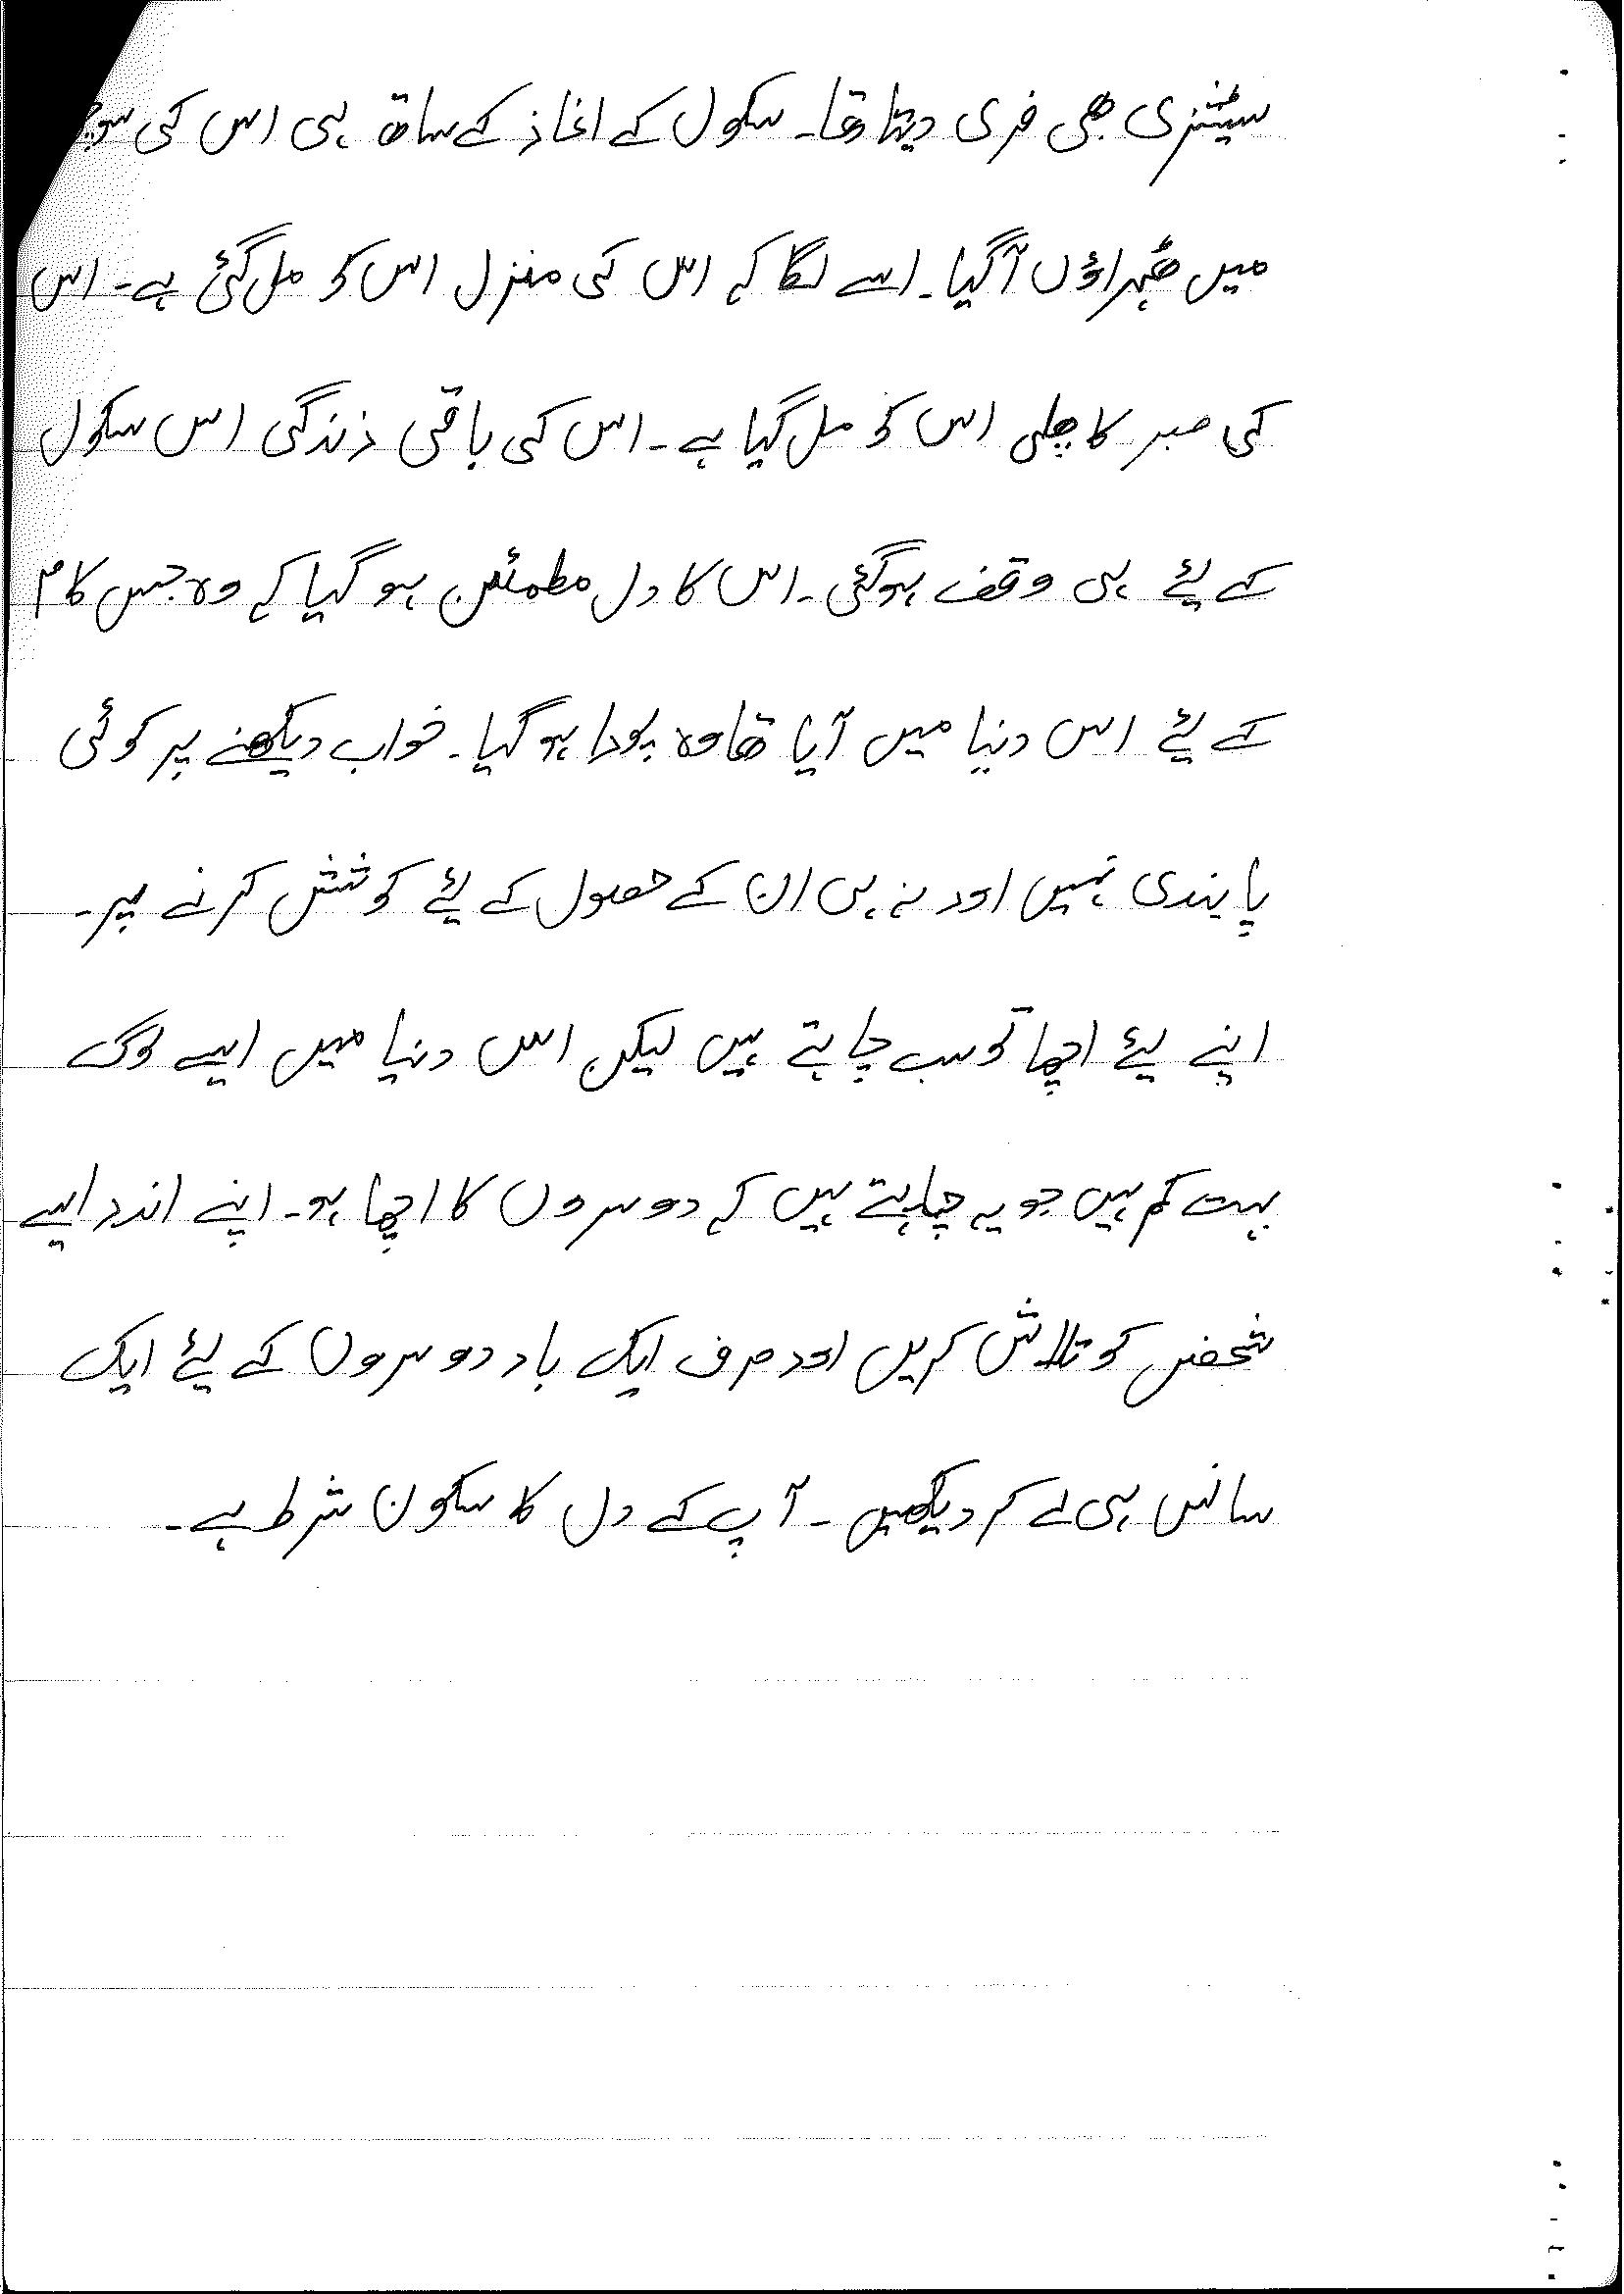 سٹیشنری بھی فری دیتا تھا۔ سکول کے اغاز کے ساتھ ہی اس کی
میں ٹھہراؤں آگیا۔ اسے لگا کے اس کی منزل اس کو مل گئی ہے۔ اس
کی صبر کا پھل اس کو مل گیا ہے۔ اس کی باقی زندگی اس سکول
کے لیئے ہی وقف ہوگئی۔ اس کا دل مطمئن ہو گیا کے وہ جس کام
کے لیئے اس دنیا میں آیا تھا وہ پورا ہو گیا۔ خواب دیکھنے پر کوئی
پابندی نہیں اور نہ ہی ان کے حصول کے لیئے کوشش کرنے پر۔
اپنے لیئے اچھا تو سب چاہتے ہیں لیکن اس دنیا میں ایسے لوگ
بہت کم ہیں جو یہ چاہتے ہیں کے دوسروں کا اچھا ہو۔ اپنے اندر ایسے
شخص کو تلاش کریں اور صرف ایک بار دوسروں کے لیئے ایک
سانس ہی لے کر دیکھیں۔ آپ کے دل کا سکون شرط ہے۔